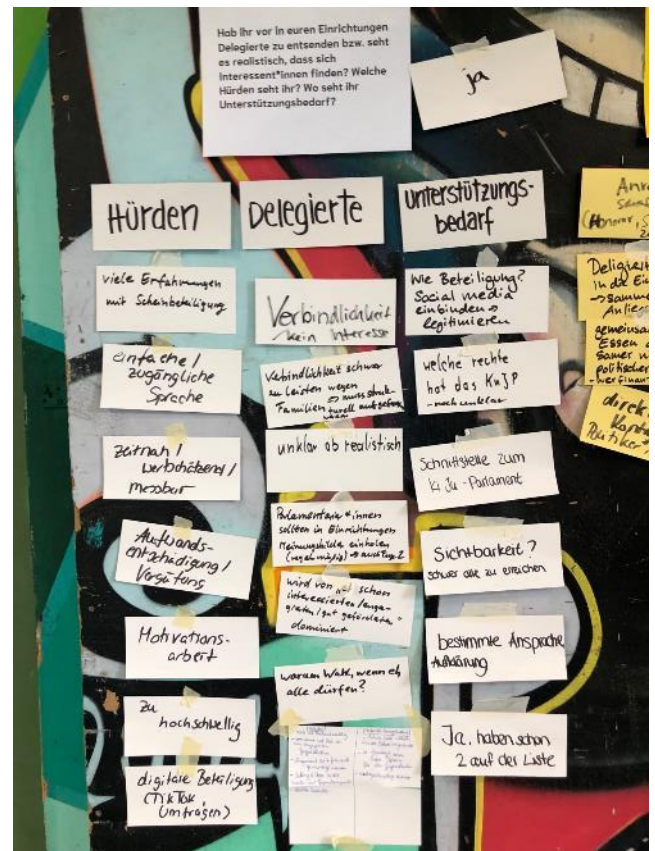 Hab ihr vor in euren Einrichtungen
Delegierte zu entsenden bzw. seht
es realistisch, dass sich
Interessent*innen finden? Welche
Hürden seht ihr? Wo seht ihr
Unterstützungsbedarf?
ja
Hürden
viele Erfahrungen
mit Scheinbeteiligung
einfache /
zugängliche
Sprache
zeitnah /
wertschätzend /
messbar
Aufwands-
entschädigung /
Vergütung
Motivations-
arbeit
zu
hochschwellig
digitale Beteiligung
(TikTok
Umfragen)
Delegierte
Verbindlichkeit
kein Interesse
Verbindlichkeit schwer
zu leisten wegen
Familien
unklar ob realistisch
Parlamentarier*innen
sollten in Einrichtungen
Meinungsbilder einholen
(regelmäßig)
wird von schon
interessierten /enga-
gierten / gut geförderten
dominiert
warum Wahl, wenn eh
alle dürfen?
Unterstützungs-
bedarf
Wie Beteiligung?
Social media
einbinden →
legitimieren
welche rechte
hat das KuJP
- noch unklar
Schnittstelle zum
KiJu-Parlament
Sichtbarkeit?
schwer alle zu erreichen
bestimmte Ansprache
Aufklärung
Ja, haben schon
2 auf der Liste
(Honorar, S
Delegiert
In die Ei
→ samm
Anlieg
gemeinsa
Essen
politischer
direk
Konta
Politiker